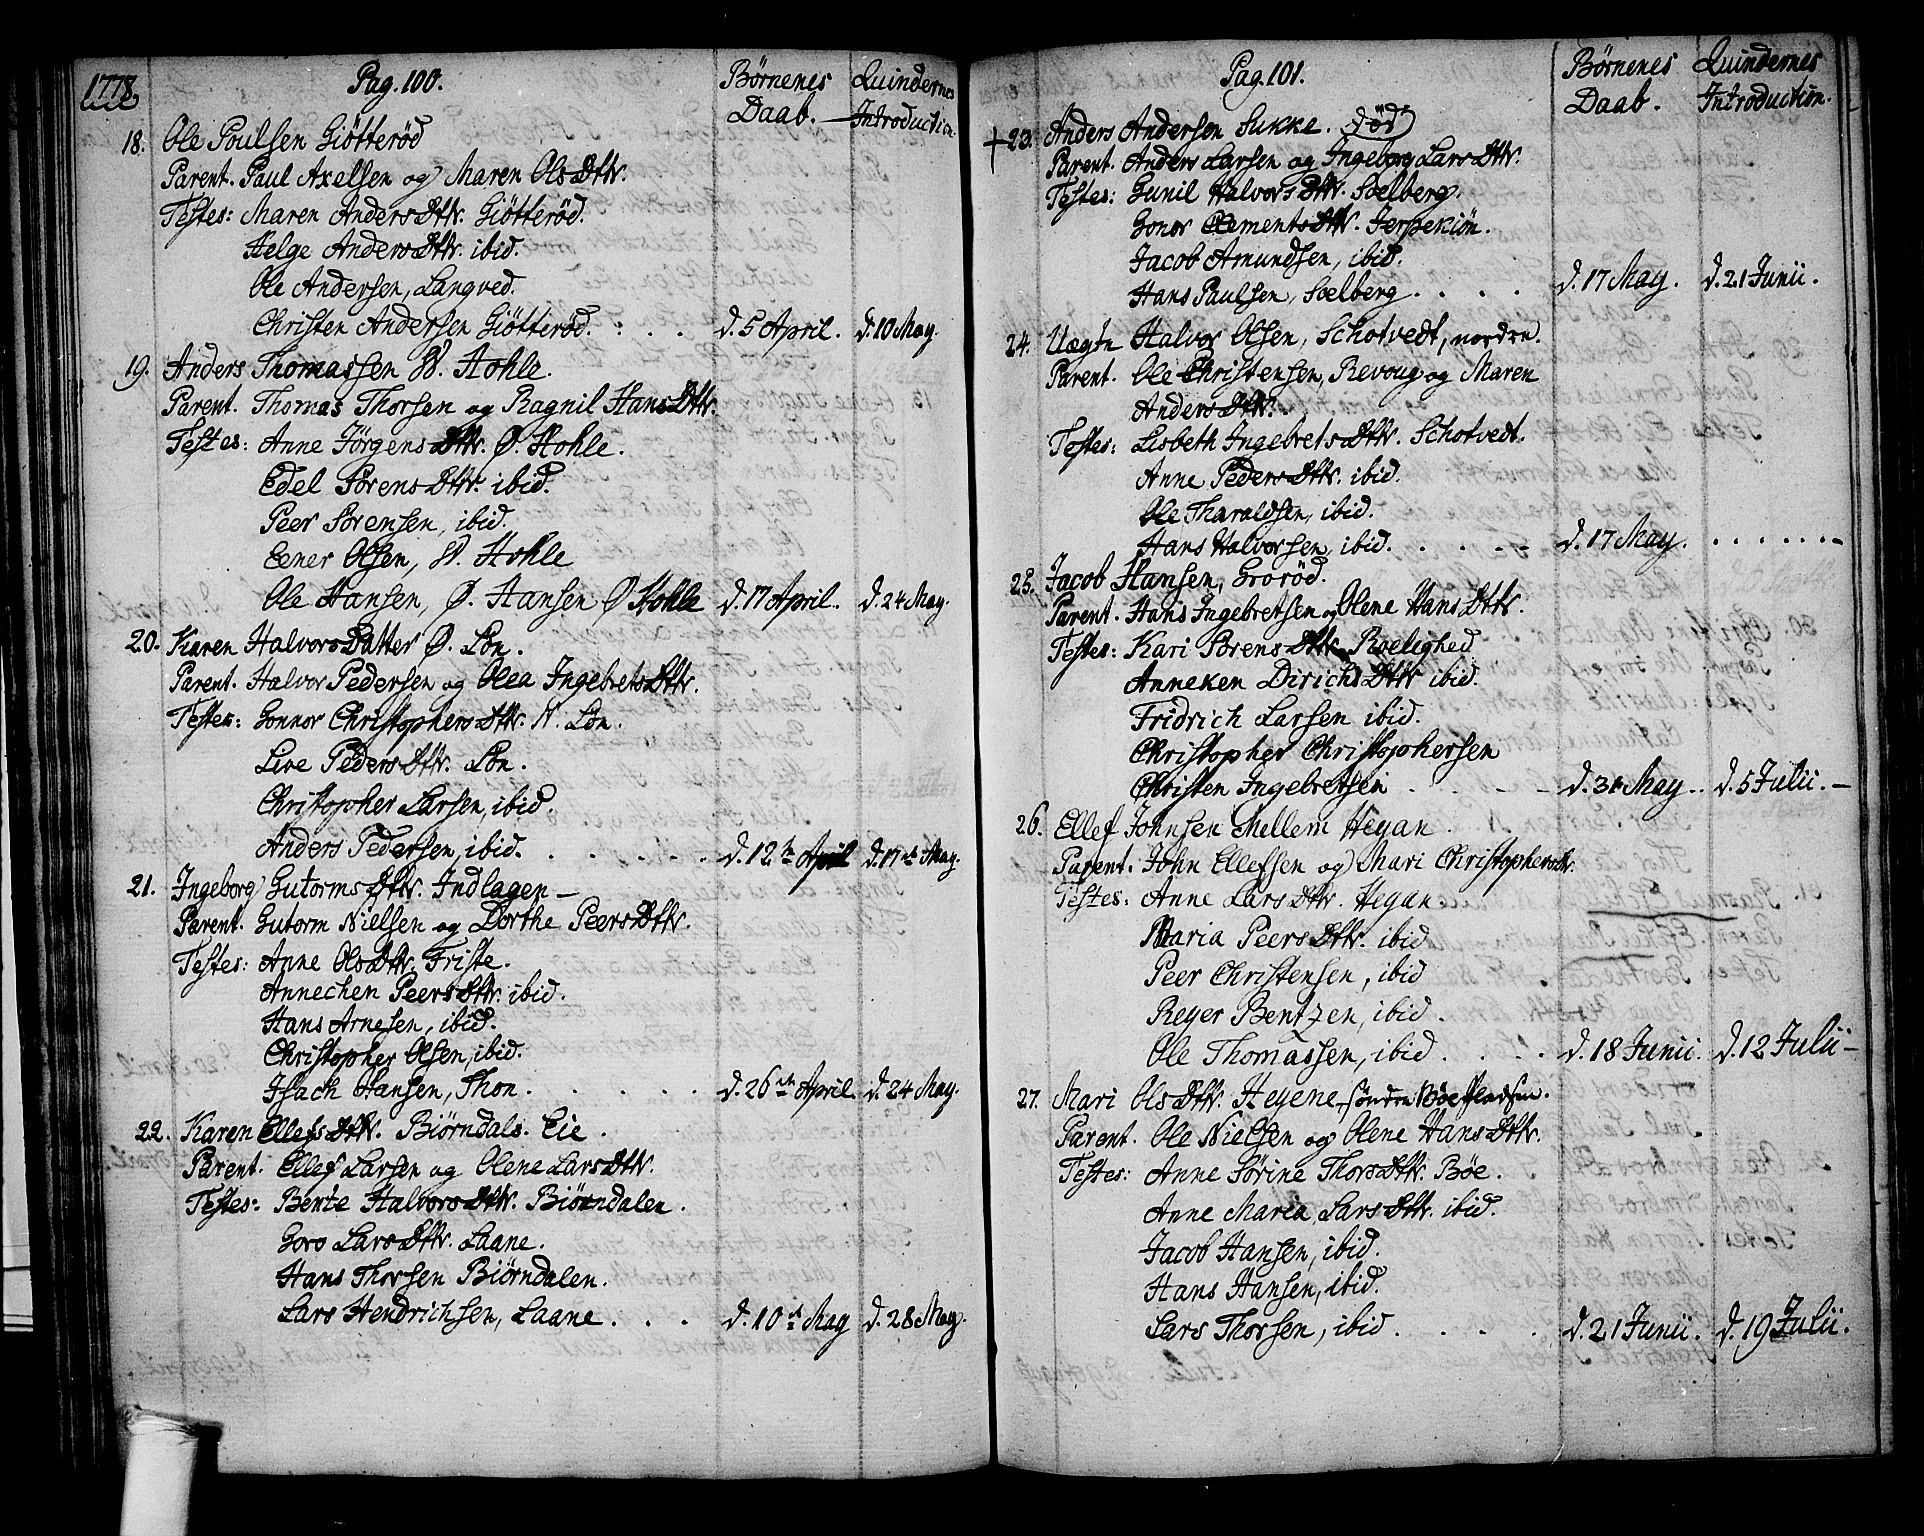 1778.
Pag. 100.
Børnenes Daab.
Quindernes Introduction.
18. Ole Poulsen Giötteröd
Parent. Paul Axelsen og Maren OlsDttr.
Testes: Maren AndersDttr. Giötteröd.
Helge AndersDttr. ibid.
Ole Andersen, Langved.
Christen Andersen Giötteröd. : . . d. 5 April. d. 10 May.
19. Anders Thomassen W. Hohle.
Parent. Thomas Thorsen og Ragnil HansDttr.
Testes: Anne JörgensDttr. Ø. Hohle.
Edel SörensDttr. ibid.
Peer Sörensen, ibid.
Eener Olsen, W. Hohle
Ole Hansen, Ø. Hansen Ø Hohle d. 17 April.. d. 24 May.
20. Karen HalvorsDatter Ø. Lön.
Parent. Halvor Pedersen og Olea IngebretsDttr.
Testes: Gonnor ChristophersDttr. N. Lön.
Live PedersDttr. Lön.
Christopher Larsen, ibid.
Anders Pedersen, ibid. . . . . . d. 12te April d. 17de May.
21. Ingeborg GutormsDttr. Indlagen —
Parent. Gutorm Nielsen og Dorthe PeersDttr.
Testes: Anne OlsDttr. Friste.
Annechen PeersDttr. ibid.
Hans Arnesen, ibid.
Christopher Olsen, ibid.
Isach Hansen, Thon . . . . . d. 26de April. d. 24 May.
22. Karen EllefsDttr. Biörndals. Eie.
Parent. Ellef Larsen og Olene LarsDttr.
Testes: Bente HalvorsDttr. Biörndalen.
Goro LarsDttr. Laane.
Hans Thorsen Biörndalen.
Lars Hendrichsen, Laane . . . d. 10de May d. 28 May.
Pag. 101.
Børnenes Daab.
Quindernes Introduction.
+ 23. Anders Andersen Sukke. död
Parent. Anders Larsen og Ingeborg LarsDttr.
Testes: Gunil HalvorsDttr. Soelberg.
Gonor ClementsDttr. Jerpekiön.
Jacob Amundsen, ibid.
Hans Paulsen, Soelberg . . . . d. 17 May. d. 21 Junii.
24. Uægte Halvor Olsen, Schotvedt, nordre.
Parent. Ole Christensen, Revoug og Maren
AndersDttr.
Testes: Lisbeth IngebretsDttr. Schotvedt.
Anne PedersDttr. ibid.
Ole Tharaldsen, ibid.
Hans Halvorsen, ibid. . . . . d. 17 May. . . . . . . .
25. Jacob Hansen, Groröd.
Parent. Hans Ingebretsen og Olene HansDttr.
Testes: Kari SörensDttr. Roelighed
Anneken DirichsDttr ibid.
Fridrich Larsen ibid.
Christopher Christophersen
Christen Ingebretsen . . . . d. 31 May .. d. 5 Julii. —
26. Ellef Johnsen Mellem Hegan.
Parent. John Ellefsen og Mari Christophersdr.
Testes: Anne LarsDttr. Hegan
Maria PeersDttr. ibid
Peer Christensen, ibid
Reyer Bentzen, ibid.
Ole Thomassen, ibid. . . . d. 18 Junii. d. 12 Julii —
27. Mari OlsDttr. Heyene, söndre Böe Pladsen.
Parent. Ole Nielsen og Olene HansDttr.
Testes: Anne Sörine ThorsDttr. Böe.
Anne Marea LarsDttr. ibid.
Jacob Hansen, ibid.
Hans Hansen, ibid.
Lars Thorsen, ibid . . . . d. 21 Junii. d. 19 Julii.